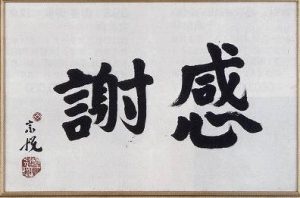 感謝
宗悦